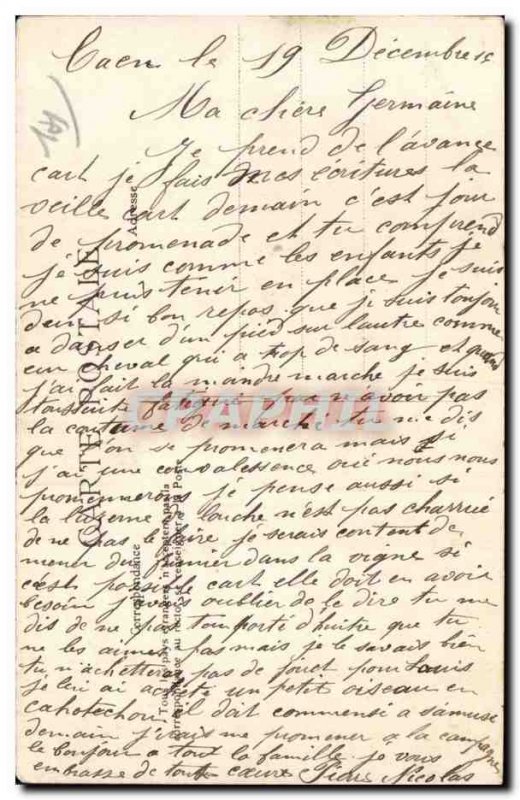 Caen le 19 Décembre 15
Ma chère Germaine
Je prend de l'avance
cart je fais mes écritures la
veille cart demain c'est jour
de promenade et tu comprend
je suis comme les enfants je
ne peus tenir en place je suis
dans si bon repos que je suis toujour
a danser d'un pied sur l'autre comme
un cheval qui a trop de sang et quand
j'ai fait la moindre marche je suis
toussuite fatigué de ne avoir pas
la coutume de marché tu me dis
que l'on se promenera mais si
j'ai une convalessence oui nous nous
promennerons je pense aussi si
la luzerne a Loiche n'est pas charrué
de ne pas le faire je serais contont de
mener du fumier dans la vigne si
c'est possible cart elle doit en avoir
besoin j'avais oublier de le dire tu me
dis de ne pas t'emporté d'huitre que tu
ne les aimes pas mais je le savais bien
tu n'achettera pas de jouet pour Louis
je lui ai acheté un petit oiseau en
cahotechou il doit commensi a s'amuse
demain j'irais me promener a la campagne
le bonjour a tout la famille je vous
embrasse de tout cœur Pierre Nicolas
CARTE POSTALE
Adresse
Correspondance
Tous les pays étrangers n'acceptent pas la
correspondance au recto (se renseigner à la Poste
CPAPHIL